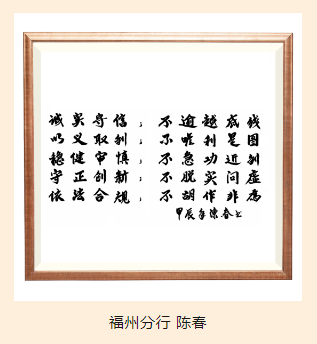 诚实守信，不逾越底线
以义取利，不唯利是图
稳健审慎，不急功近利
守正创新，不脱实向虚
依法合规，不胡作非为
甲辰年陈春书
福州分行 陈春